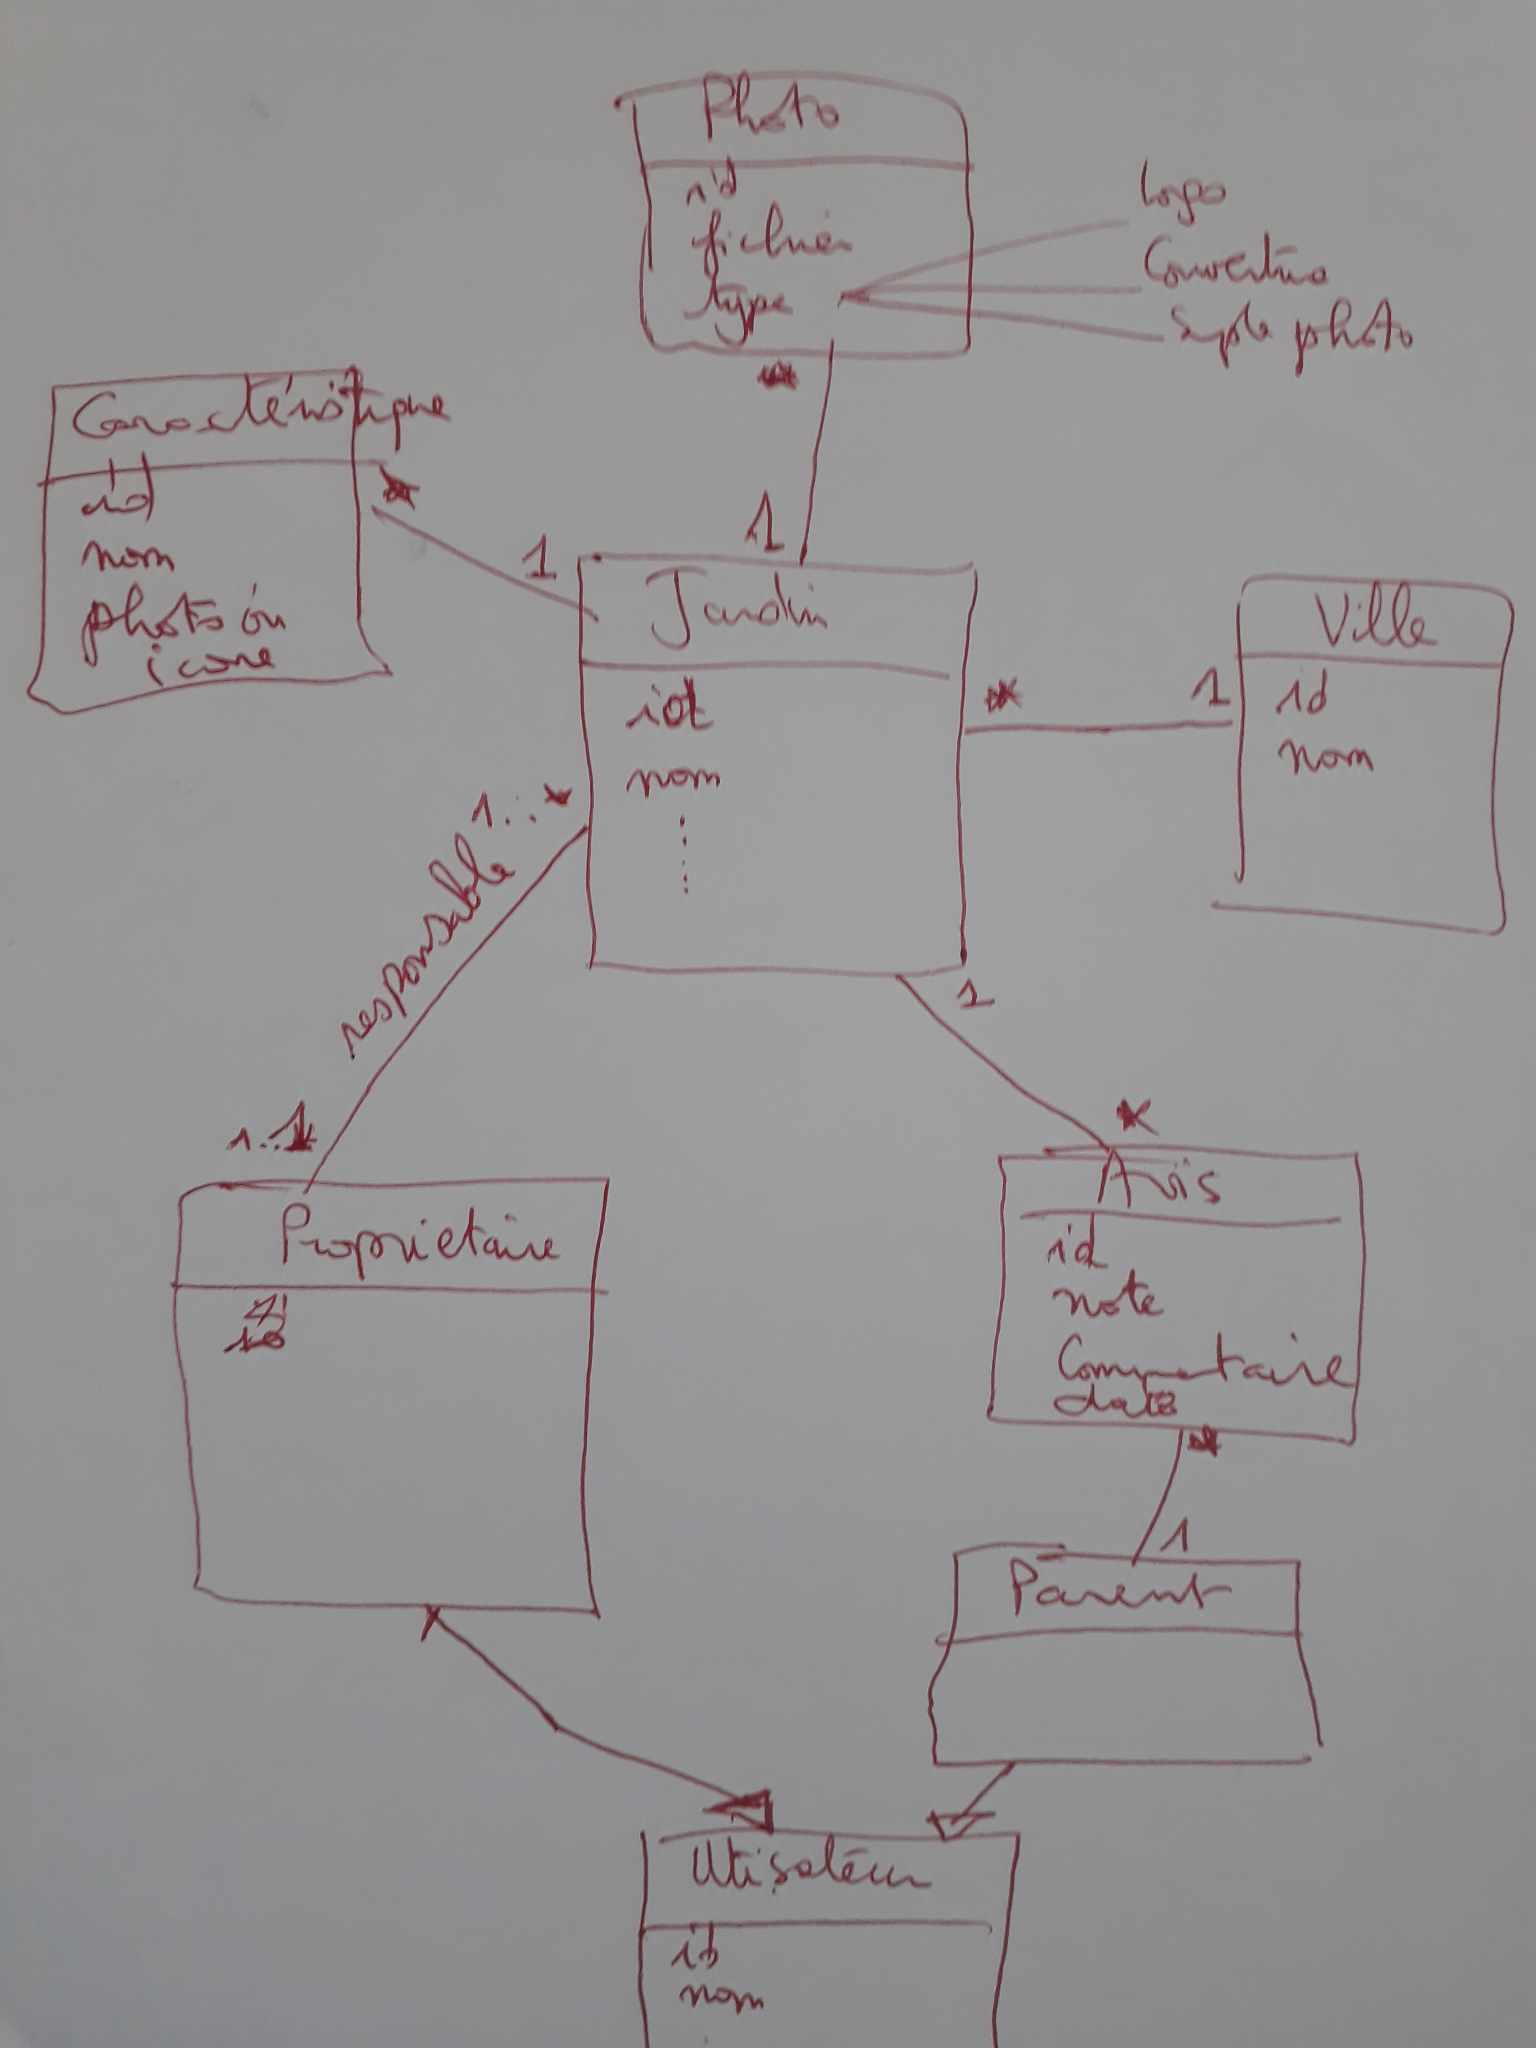 Photo
id
fichier
type
Logo
Couverture
Simple photo
*
Caractéristique
id
nom
photo ou
icone
*
1
1
Jardin
id
nom
Ville
id
nom
*
1
1..*
responsable
1
*
Proprietaire
Avis
id
note
Commentaire
date
*
1
Parent
Utisateur
id
nom